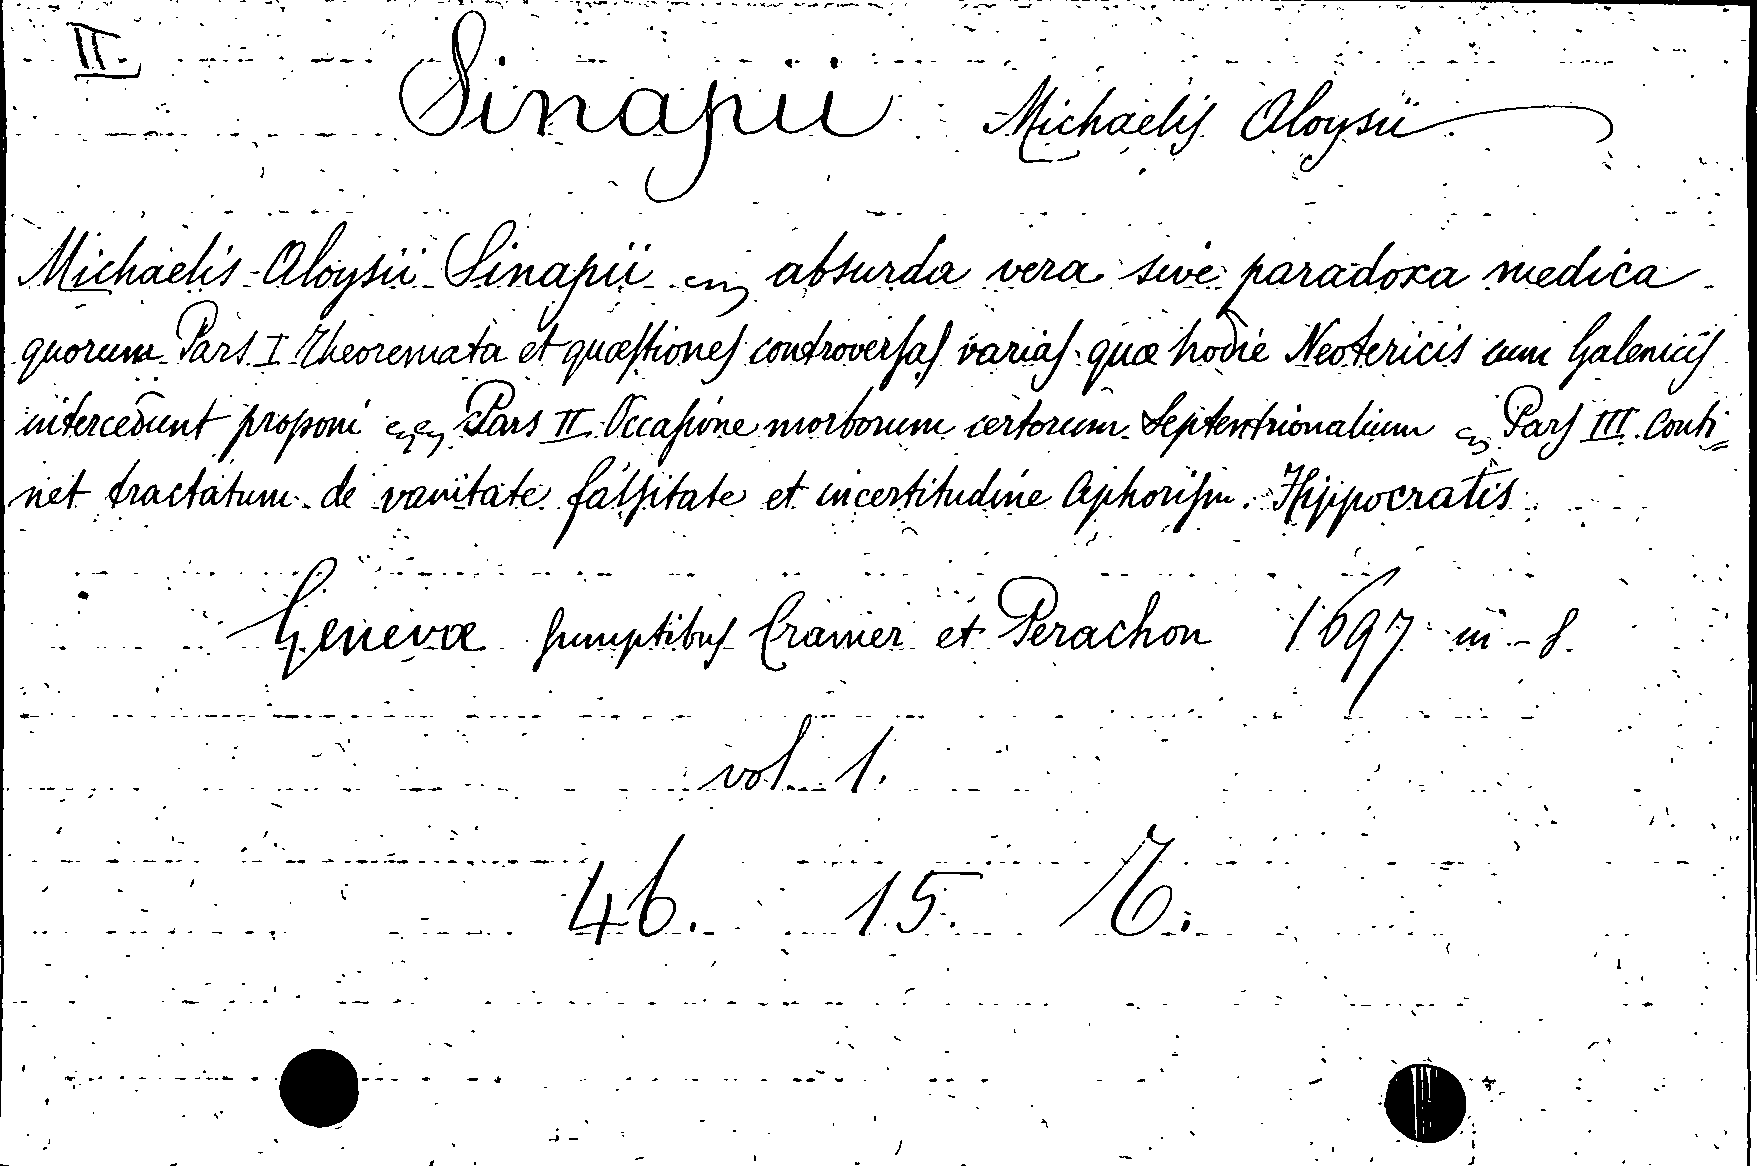 II.
Sinapii Michaelis Aloysii
Michaelis Aloysii Sinapii absurda vera sive paradoxa medica
quorum Pars I Theoremata et quæstiones controversas varias quæ hodie Neotericis cum Galenicis
intercedunt proponi Pars II Occasione morborum certorum Septentrionalium Pars III Conti=
net tractatum de vanitate falsitate et incertitudine Aphorism. Hyppocratis
Genevæ sumptibus Cramer et Perachon 1697 in-8.
vol 1.
46. 15.